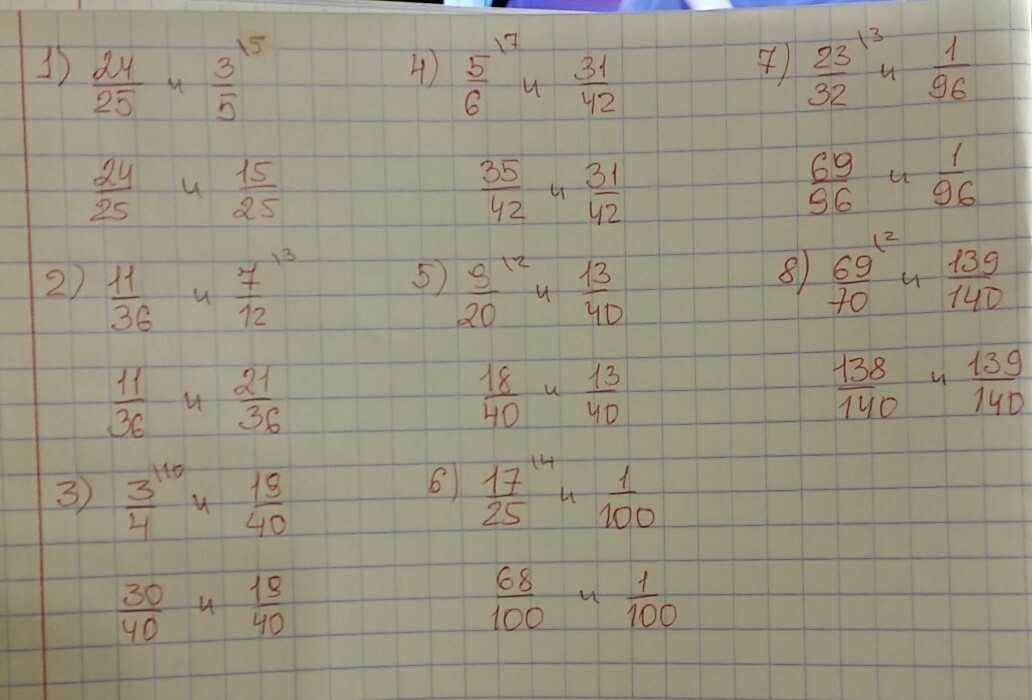 1) 24/25 и 3/5 \5
24/25 и 15/25
2) 11/36 и 7/12 \3
11/36 и 21/36
3) 3/4 \10 и 19/40
30/40 и 19/40
4) 5/6 \7 и 31/42
35/42 и 31/42
5) 9/20 \2 и 13/40
18/40 и 13/40
6) 17/25 \4 и 1/100
68/100 и 1/100
7) 23/32 \3 и 1/96
69/96 и 1/96
8) 69/70 \2 и 139/140
138/140 и 139/140